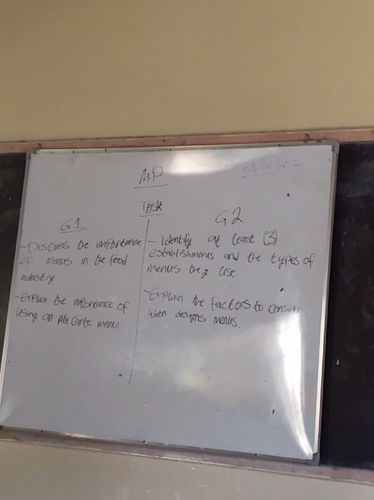 M.P
Task
G.1
- Discuss the importance
of Menus in the food
industry
- Explain the importance of
Using an Ala Carte menu
G2
- Identify at least (3)
establishments and the types of
menus they use
- Explain the factors to consider
when designs menus.